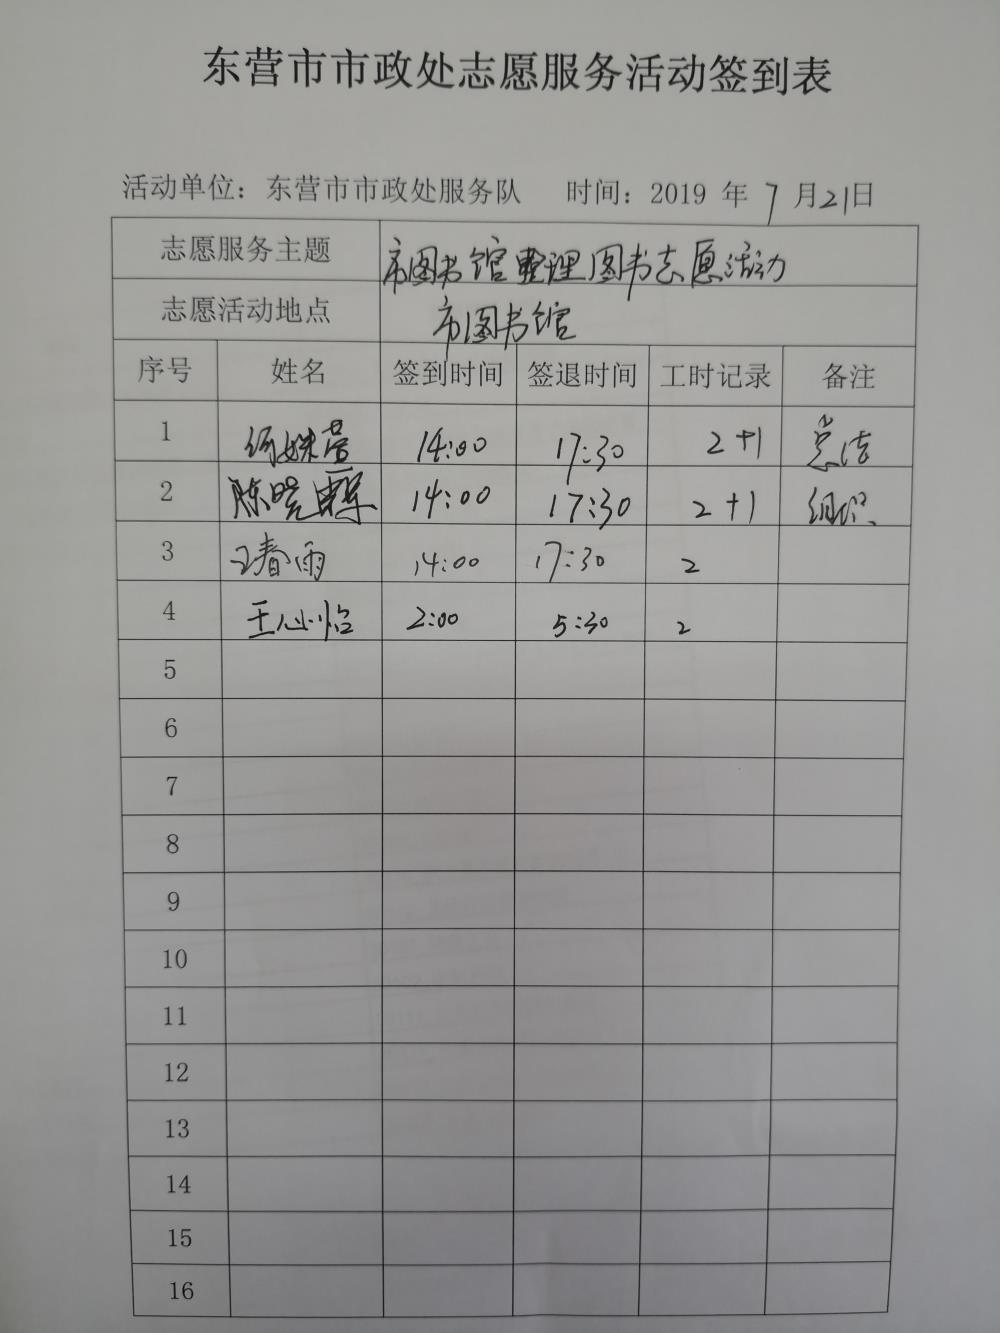 东营市市政处志愿服务活动签到表
活动单位：东营市市政处服务队 时间：2019 年 7 月 21 日
志愿服务主题 市图书馆整理图书志愿活动
志愿活动地点 市图书馆
序号 姓名 签到时间 签退时间 工时记录 备注
1 14:00 17:30 2+1 总结
2 陈晓 14:00 17:30 2+1 组织
3 王春雨 14:00 17:30 2
4 王心怡 2:00 5:30 2
5
6
7
8
9
10
11
12
13
14
15
16